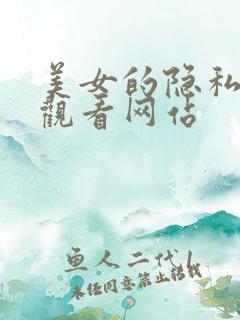 美女的隐私
觀看网站
鱼人二代
未经同意禁止转载